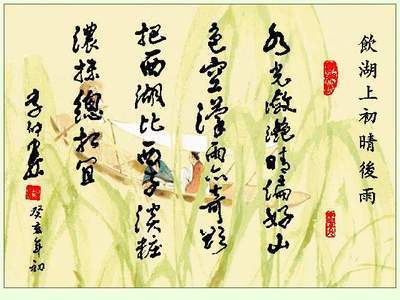 飲湖上初晴後雨
水光瀲灩晴偏好山
色空濛雨亦奇欲
把西湖比西子淡粧
濃抹總相宜
癸亥年初